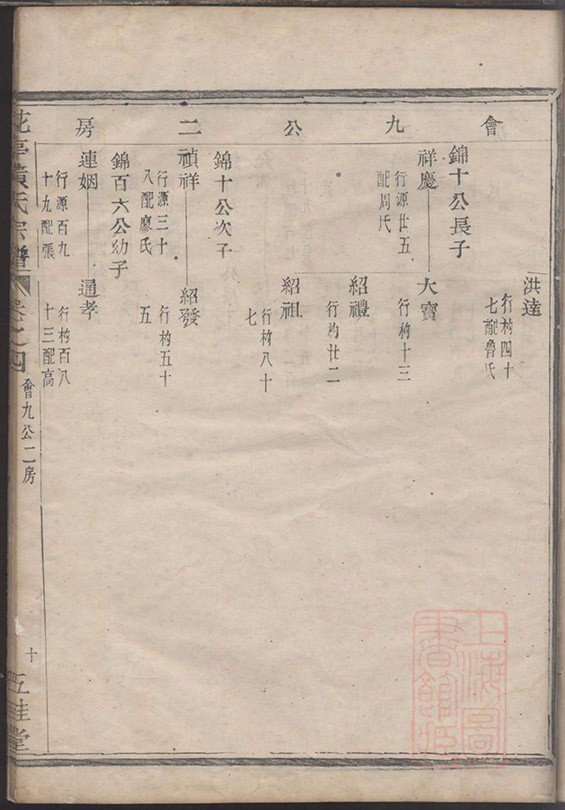 會九公二房
洪達
行杓四十
七配魯氏
錦十公長子
祥慶
行源廿五
配周氏
大寶
行杓十三
紹禮
行杓廿二
紹祖
行杓八十
七
錦十公次子
禎祥
行源三十
八配廖氏
紹發
行杓五十
五
錦百六公幼子
連姻
行源百九
十九配張
通孝
行杓百八
十三配高
黃氏宗譜
卷之四
會九公二房
十
五桂堂
上海圖
書館藏